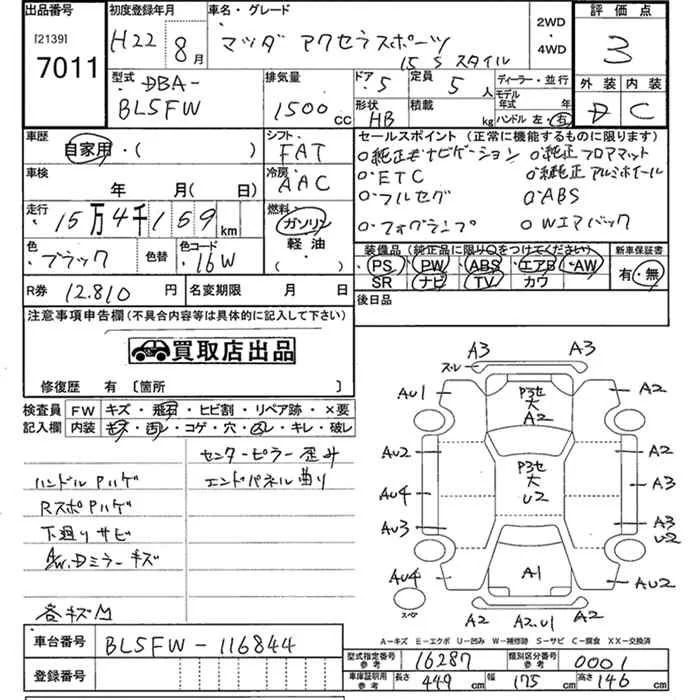 出品番号 初度登録年月 車名・グレード 2WD ・ 4WD 評価点
[2139]
7011 H22 8月 マツダ アクセラスポーツ 3
15S スタイル
型式 DBA- 排気量 ドア 5 定員 5人 ディーラー・並行 外装 内装
モデル年式 年
BL5FW 1500cc 形状 HB 積載 kg ハンドル 左・右 D C
車歴 自家用・( ) シフト FAT セールスポイント (正常に機能するものに限ります)
○純正ナビゲーション ○純正フロアマット
車検 年 月(日) 冷房 AAC ○ETC ○純正アルミホイール
○フルセグ ○ABS
走行 15万4千159km 燃料 ガソリン 軽油 ( ・ ) ○フォグランプ ○Wエアバック
色 ブラック 色替 色コード 16W 装備品 (純正品に限り○をつけてください) 新車保証書
PS PW ABS エアB AW 有・無
SR ナビ TV カワ
R券 12.810円 名変期限 月 日 後日品
注意事項申告欄 (不具合内容等は具体的に記入して下さい)
買取店出品
修復歴 有 〔箇所 〕
検査員 FW キズ・飛石・ヒビ割・リペア跡・×要
記入欄 内装 キズ・汚レ・コゲ・穴・スレ・キレ・破レ
センターピラー歪み
ハンドルPハゲ エンドパネル曲り
RスポPハゲ
下廻りサビ
A/W.Dミラーキズ
各キズ凹
A3 A3
スレ
AU1 P3セ 大 A2 A2
AU2 P3セ 大 U2 A3
AU4
AU3 A3 U2
AU4 A1 AU2
スペア
A2 A2.U1 A2
A-キズ E-エクボ U-凹み W-補修跡 S-サビ C-腐食 XX-交換済
車台番号 BL5FW-116844
型式指定番号 参考 16287 類別区分番号 参考 0001
登録番号
車庫証明用 参考 長さ 449cm 幅 175cm 高さ 146cm